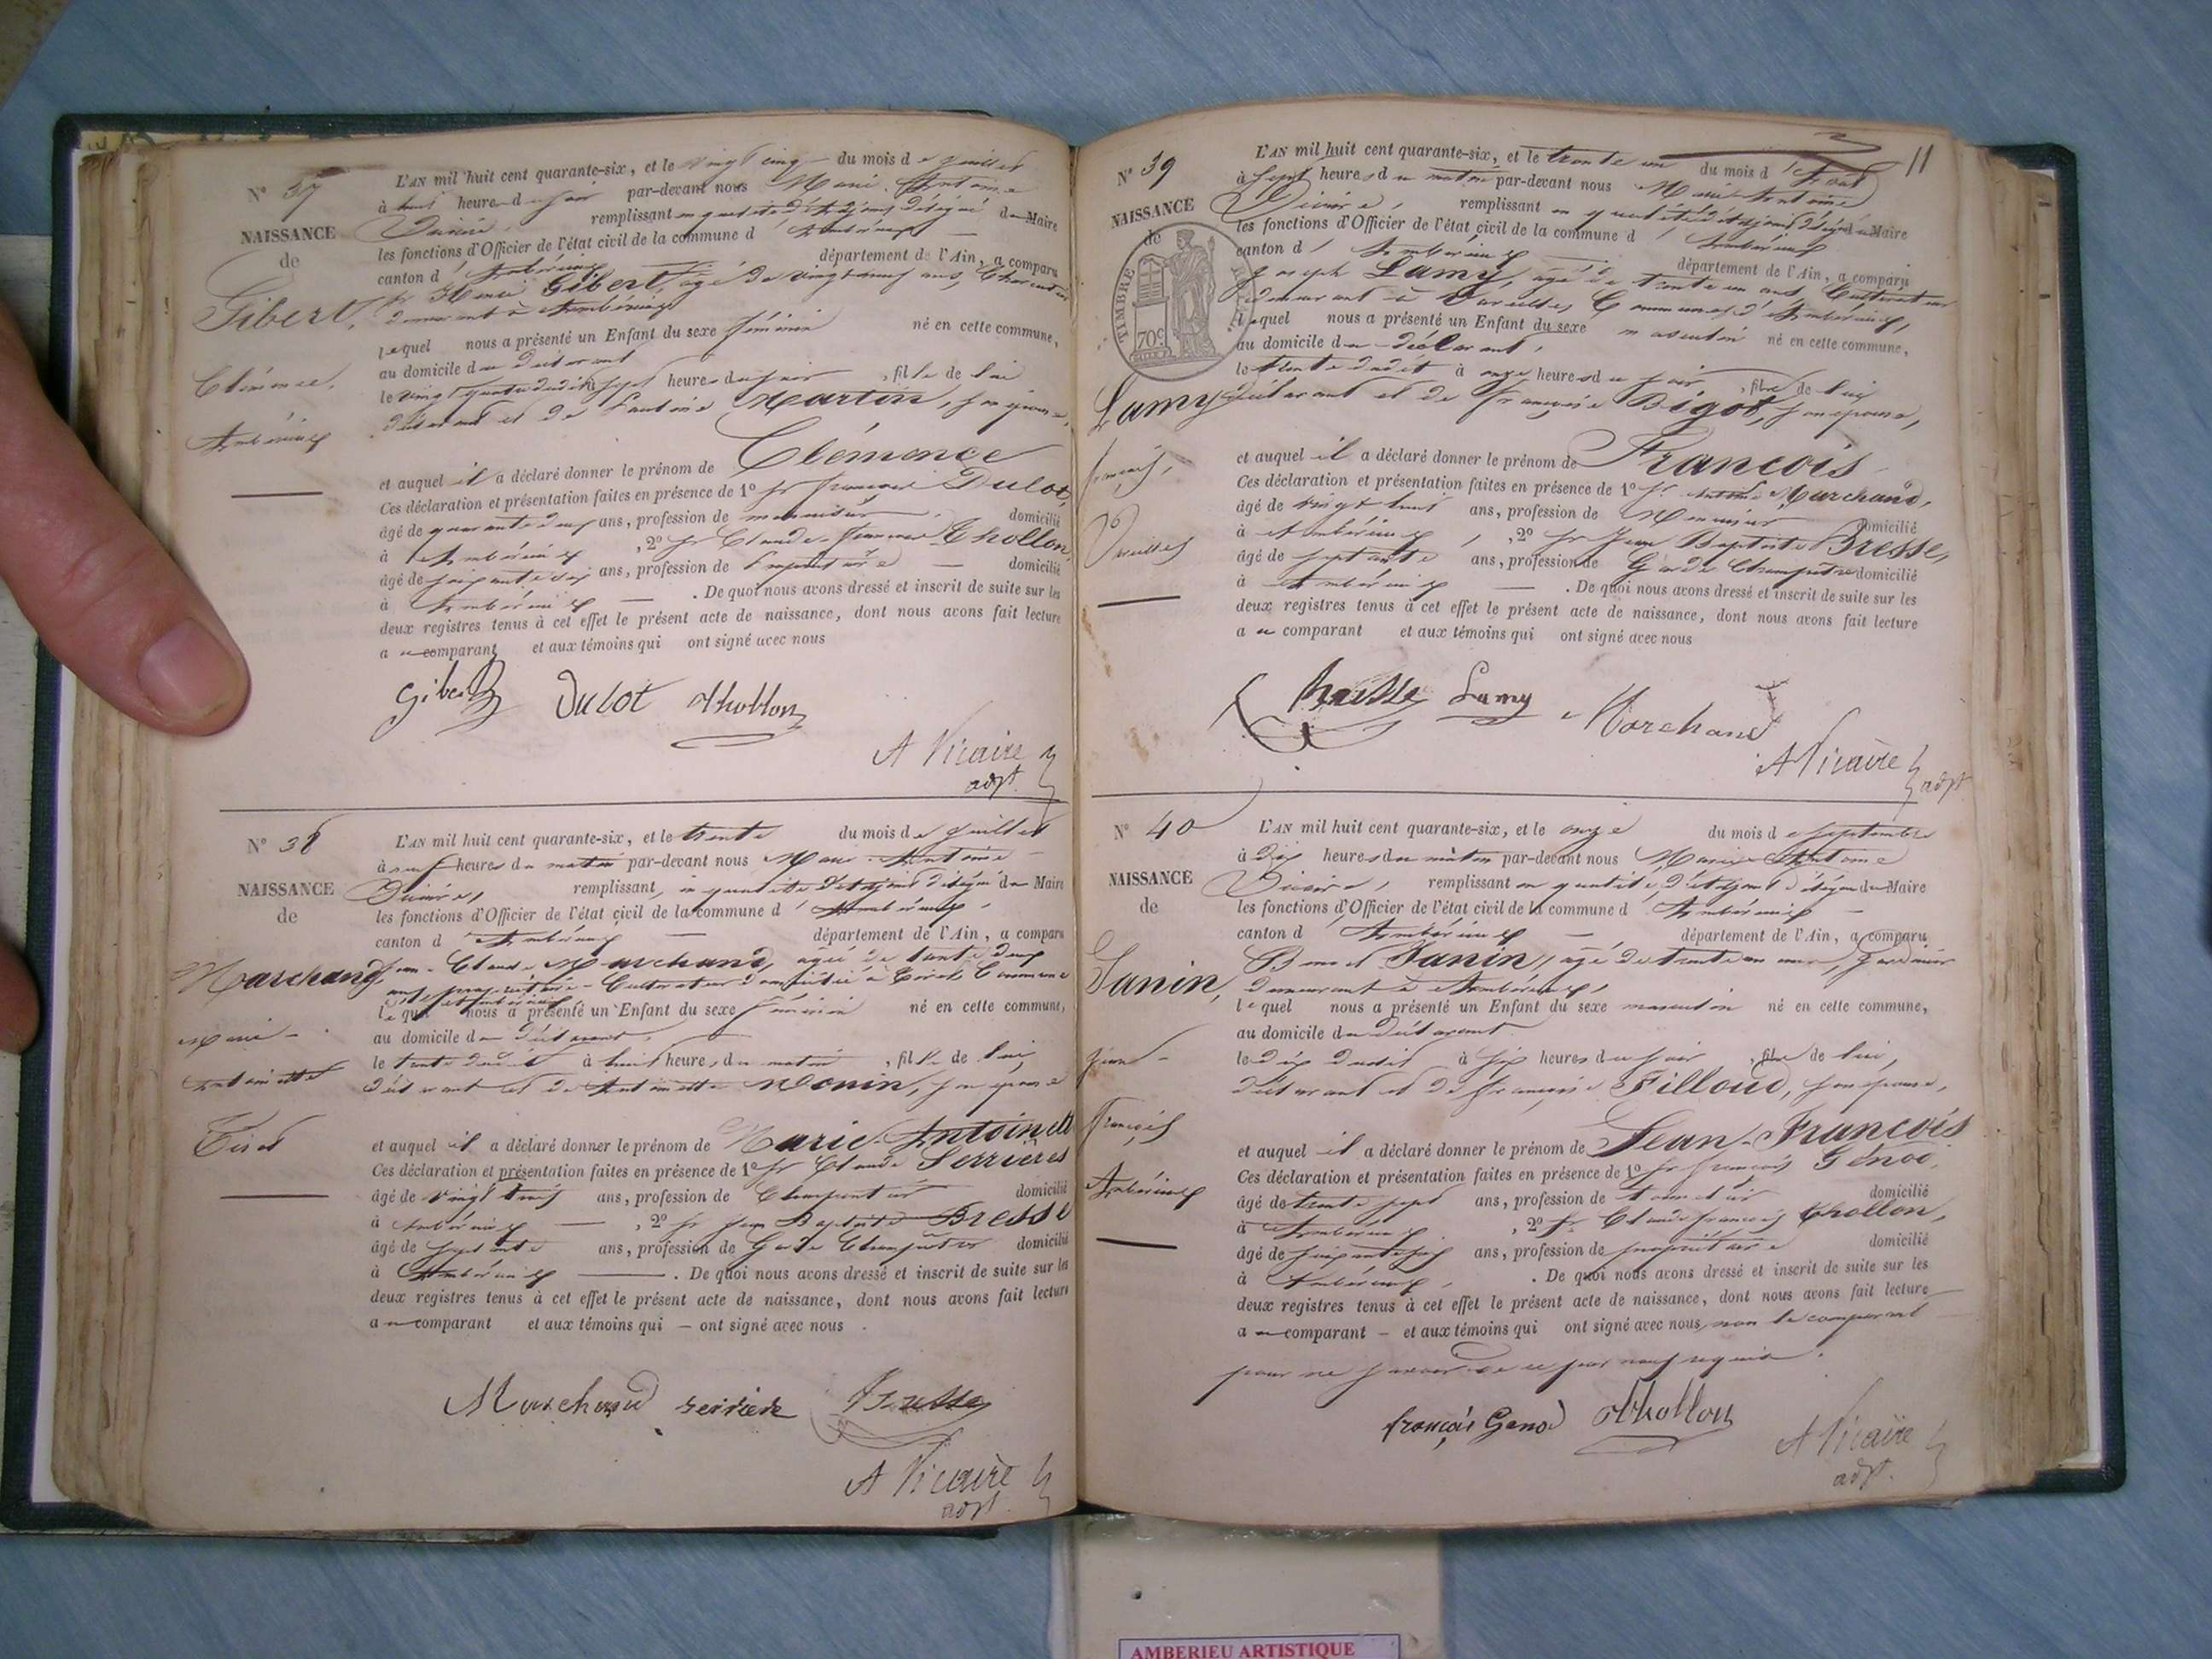 N° 37
NAISSANCE
de
Gibert,
Clémence,
Ambérieux
L'AN mil huit cent quarante-six, et le vingt cinq du mois de juillet
à huit heures du soir par-devant nous Marie-Antoine
Vicaire, remplissant en qualité d'Adjoint délégué du Maire
les fonctions d'Officier de l'état civil de la commune d'Ambérieux
canton d'Ambérieux département de l'Ain, a comparu
Sr Henri Gibert, âgé de vingt neuf ans,
demeurant à Ambérieux
lequel nous a présenté un Enfant du sexe féminin né en cette commune,
au domicile du déclarant
le vingt quatre dudit à sept heures du soir, fille de lui
déclarant et de Martin, son épouse,
et auquel il a déclaré donner le prénom de Clémence
Ces déclaration et présentation faites en présence de 1° Sr François Dulot,
âgé de quarante deux ans, profession de menuisier domicilié
à Ambérieux, 2° Sr Claude-François Chollon,
âgé de ans, profession de domicilié
à Ambérieux. De quoi nous avons dressé et inscrit de suite sur les
deux registres tenus à cet effet le présent acte de naissance, dont nous avons fait lecture
au comparant et aux témoins qui ont signé avec nous
Gibert Dulot Chollon
A Vicaire
adjt.
N° 38
NAISSANCE
de
Marchand
Marie-
Antoinette
Tiret
L'AN mil huit cent quarante-six, et le trente du mois de juillet
à neuf heures du matin par-devant nous Marie-Antoine
Vicaire, remplissant, en qualité d'Adjoint délégué du Maire
les fonctions d'Officier de l'état civil de la commune d'Ambérieux,
canton d'Ambérieux département de l'Ain, a comparu
Jean-Claude Marchand, âgé de trente deux
ans, propriétaire-Cultivateur domicilié à Tiret Commune
d'Ambérieux
lequel nous a présenté un Enfant du sexe féminin né en cette commune,
au domicile du déclarant,
le trente dudit à huit heures du matin, fille de lui,
déclarant et de Antoinette Monin, son épouse
et auquel il a déclaré donner le prénom de Marie-Antoinette
Ces déclaration et présentation faites en présence de 1° Sr Claude Serrières
âgé de vingt ans, profession de Charpentier domicilié
à Ambérieux, 2° Sr Jean Baptiste Bresse
âgé de septante ans, profession de Garde Champêtre domicilié
à Ambérieux. De quoi nous avons dressé et inscrit de suite sur les
deux registres tenus à cet effet le présent acte de naissance, dont nous avons fait lecture
au comparant et aux témoins qui – ont signé avec nous.
Marchand serriere Bresse
A Vicaire
adjt.
11
N° 39
NAISSANCE
de
TIMBRE
70c
Lamy
François,
Vareilles
L'AN mil huit cent quarante-six, et le trente un du mois d'Août
à sept heures du matin par-devant nous Marie-Antoine
Vicaire, remplissant en qualité d'Adjoint délégué du Maire
les fonctions d'Officier de l'état civil de la commune d'Ambérieux
canton d'Ambérieux département de l'Ain, a comparu
Joseph Lamy, âgé de trente un ans, Cultivateur
demeurant à Vareilles, Commune d'Ambérieux,
lequel nous a présenté un Enfant du sexe masculin né en cette commune,
au domicile du déclarant,
le trente dudit à onze heures du soir, fils de lui
déclarant et de Françoise Bigot, son épouse,
et auquel il a déclaré donner le prénom de François
Ces déclaration et présentation faites en présence de 1° Sr Antoine Marchand,
âgé de vingt huit ans, profession de Menuisier domicilié
à Ambérieux, 2° Sr Jean Baptiste Bresse,
âgé de septante ans, profession de Garde Champêtre domicilié
à Ambérieux. De quoi nous avons dressé et inscrit de suite sur les
deux registres tenus à cet effet le présent acte de naissance, dont nous avons fait lecture
au comparant et aux témoins qui ont signé avec nous
Bresse Lamy Marchand
A Vicaire adjt
N° 40
NAISSANCE
de
Janin,
Jean-
François
Ambérieux
L'AN mil huit cent quarante-six, et le onze du mois de septembre
à dix heures du matin par-devant nous Marie-Antoine
Vicaire, remplissant en qualité d'Adjoint délégué du Maire
les fonctions d'Officier de l'état civil de la commune d'Ambérieux
canton d'Ambérieux département de l'Ain, a comparu
Benoit Janin, âgé de trente un ans, Jardinier
demeurant à Ambérieux,
lequel nous a présenté un Enfant du sexe masculin né en cette commune,
au domicile du déclarant
le dix dudit à six heures du soir, fils de lui,
déclarant et de Françoise Filloud, son épouse,
et auquel il a déclaré donner le prénom de Jean-François
Ces déclaration et présentation faites en présence de 1° Sr François Génod,
âgé de trente sept ans, profession de domicilié
à Ambérieux, 2° Sr Claude François Chollon,
âgé de ans, profession de propriétaire domicilié
à Ambérieux,. De quoi nous avons dressé et inscrit de suite sur les
deux registres tenus à cet effet le présent acte de naissance, dont nous avons fait lecture
au comparant – et aux témoins qui ont signé avec nous, non le comparant
pour ne savoir de ce par nous requis.
françois Genod Chollon
A Vicaire
adjt.
AMBERIEU ARTISTIQUE